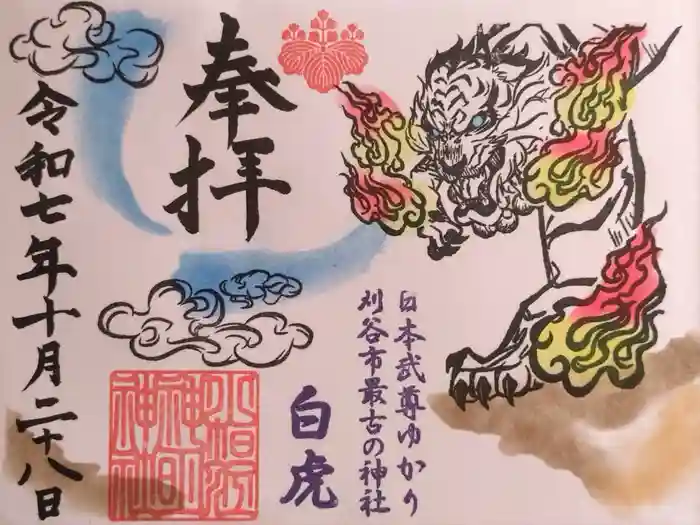 日本武尊ゆかり
刈谷市最古の神社
白虎
奉拝
令和七年十月二十八日